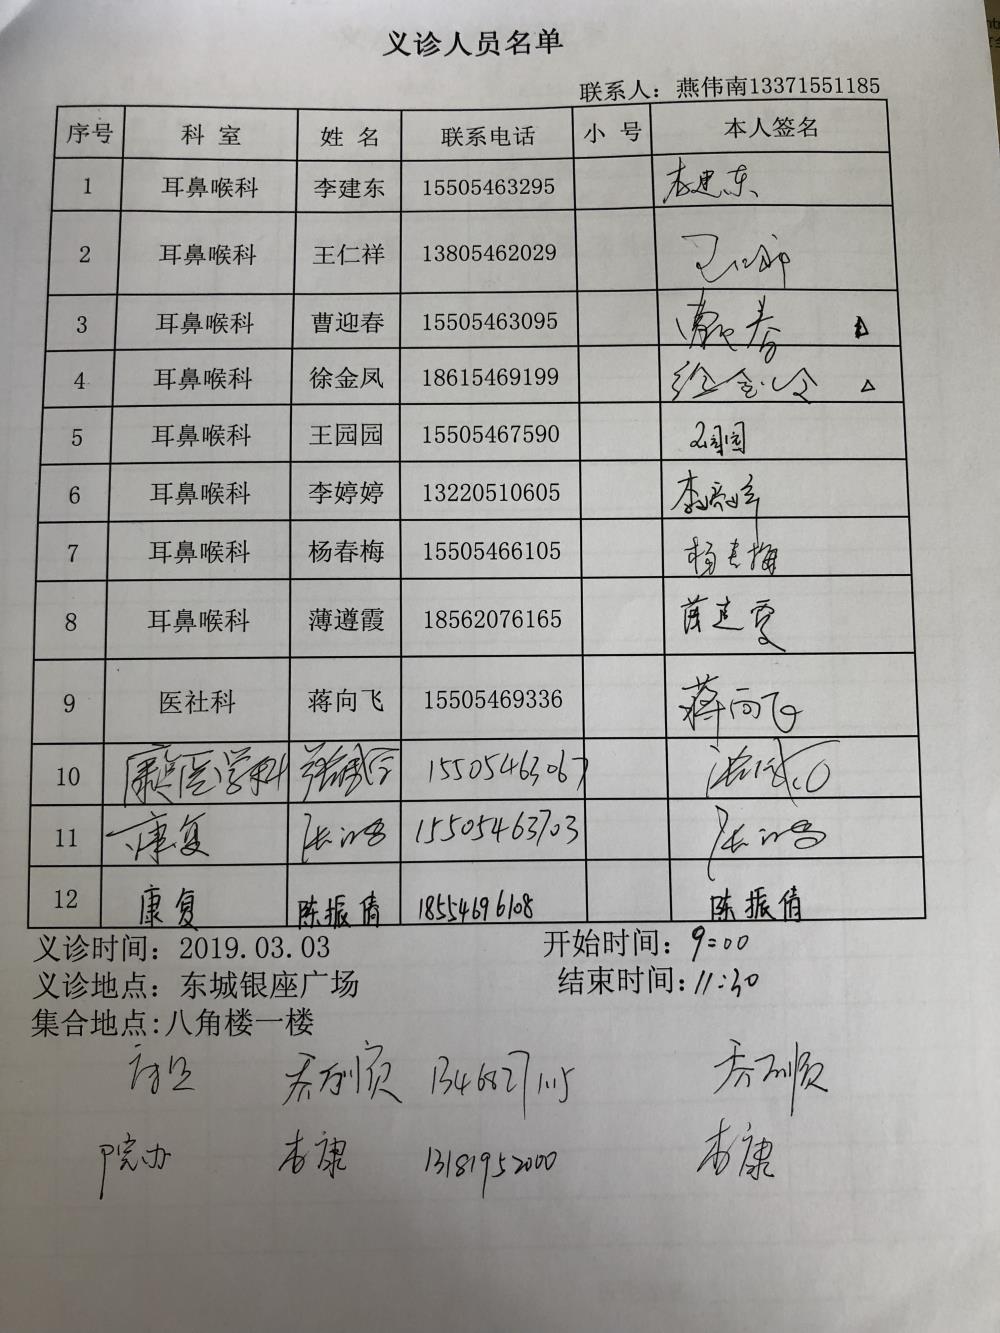 义诊人员名单
联系人：燕伟南13371551185
序号 科室 姓名 联系电话 小号 本人签名
1 耳鼻喉科 李建东 15505463295 李建东
2 耳鼻喉科 王仁祥 13805462029
3 耳鼻喉科 曹迎春 15505463095 曹迎春
4 耳鼻喉科 徐金凤 18615469199
5 耳鼻喉科 王园园 15505467590 王园园
6 耳鼻喉科 李婷婷 13220510605 李婷婷
7 耳鼻喉科 杨春梅 15505466105 杨春梅
8 耳鼻喉科 薄遵霞 18562076165
9 医社科 蒋向飞 15505469336 蒋向飞
10 康复医学科 15505463067
11 康复 15505463703
12 康复 陈振倩 18554696108 陈振倩
义诊时间：2019.03.03 开始时间：9:00
义诊地点：东城银座广场 结束时间：11:30
集合地点:八角楼一楼
13468271115
院办 李康 13181952000 李康